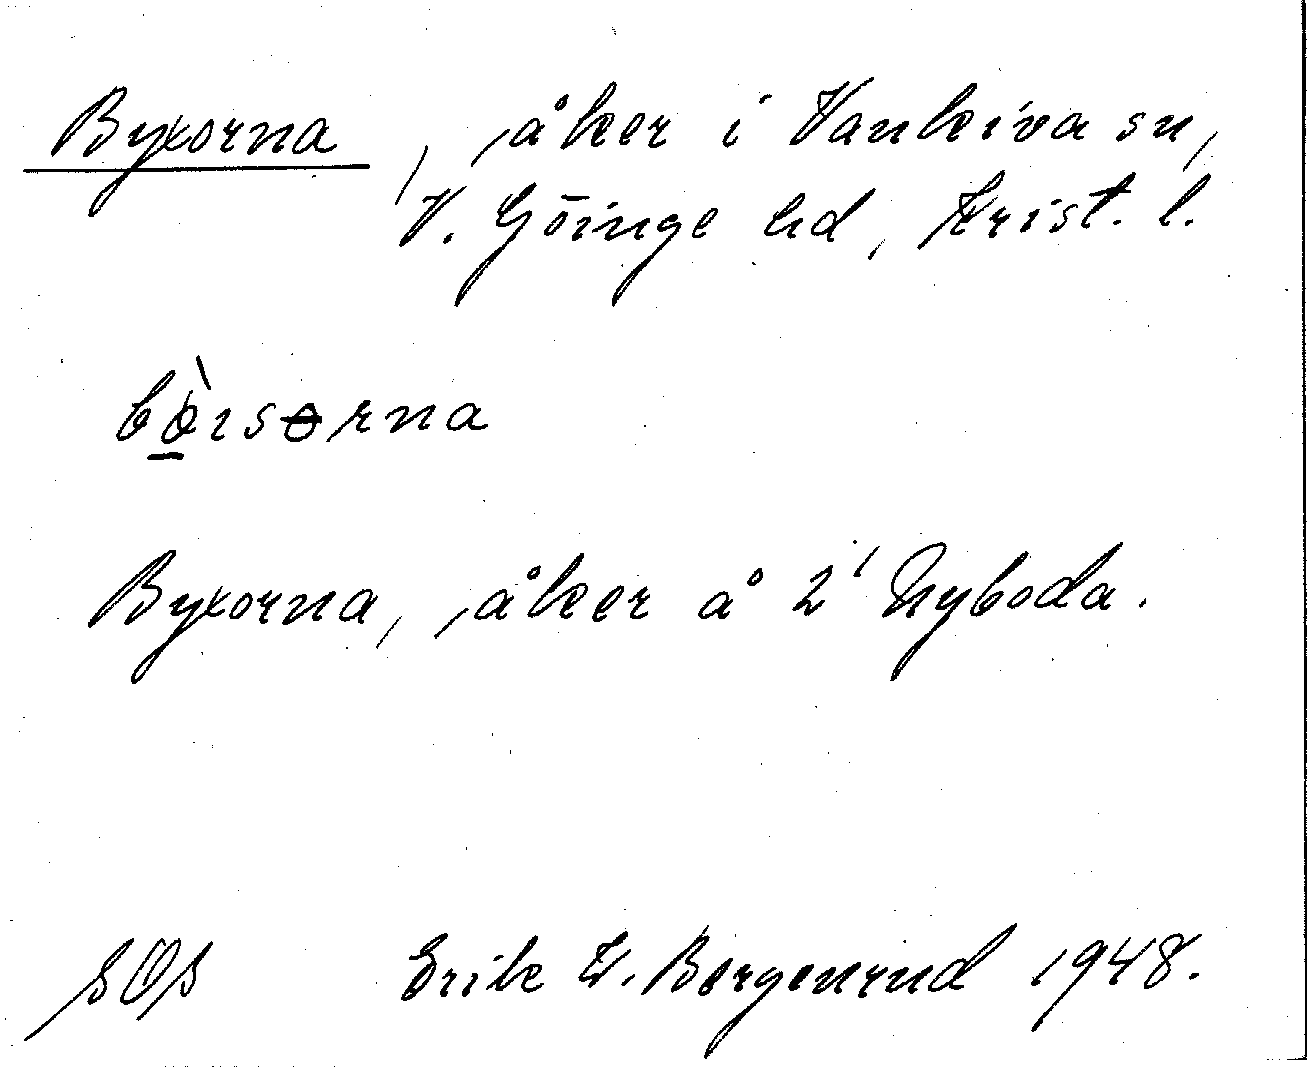 Byxorna, åker i Vankiva sn,
V. Göinge hd, Krist. l.
bø̠̀ısɵrna
Byxorna, åker å 2¹ Nyboda.
SOS Erik K. Bergenrud 1948.